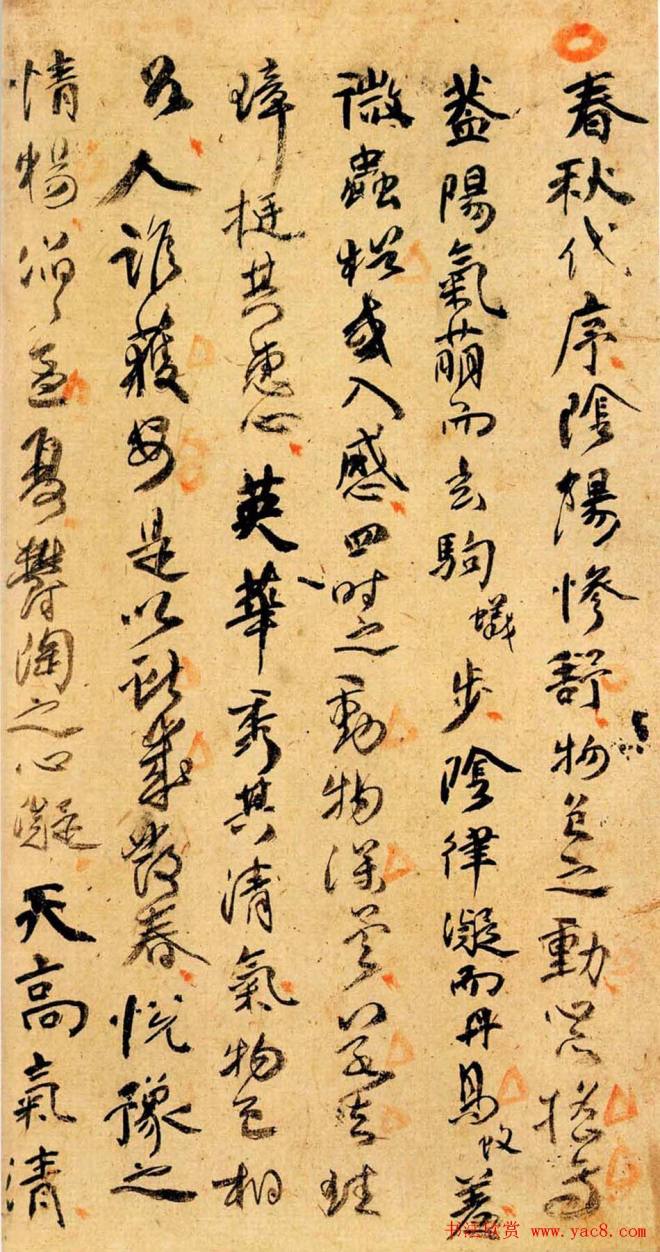 春秋代序陰陽慘舒物色之動心亦搖焉
蓋陽氣萌而玄駒蟻步陰律凝而丹鳥蚊羞
微蟲猶或入感四時之動物深矣若夫珪
璋挺其惠心英華秀其清氣物色相
召人誰獲安是以獻歲發春悅豫之
情暢滔〻孟夏鬱陶之心凝天高氣清
书法欣赏 www.yac8.com